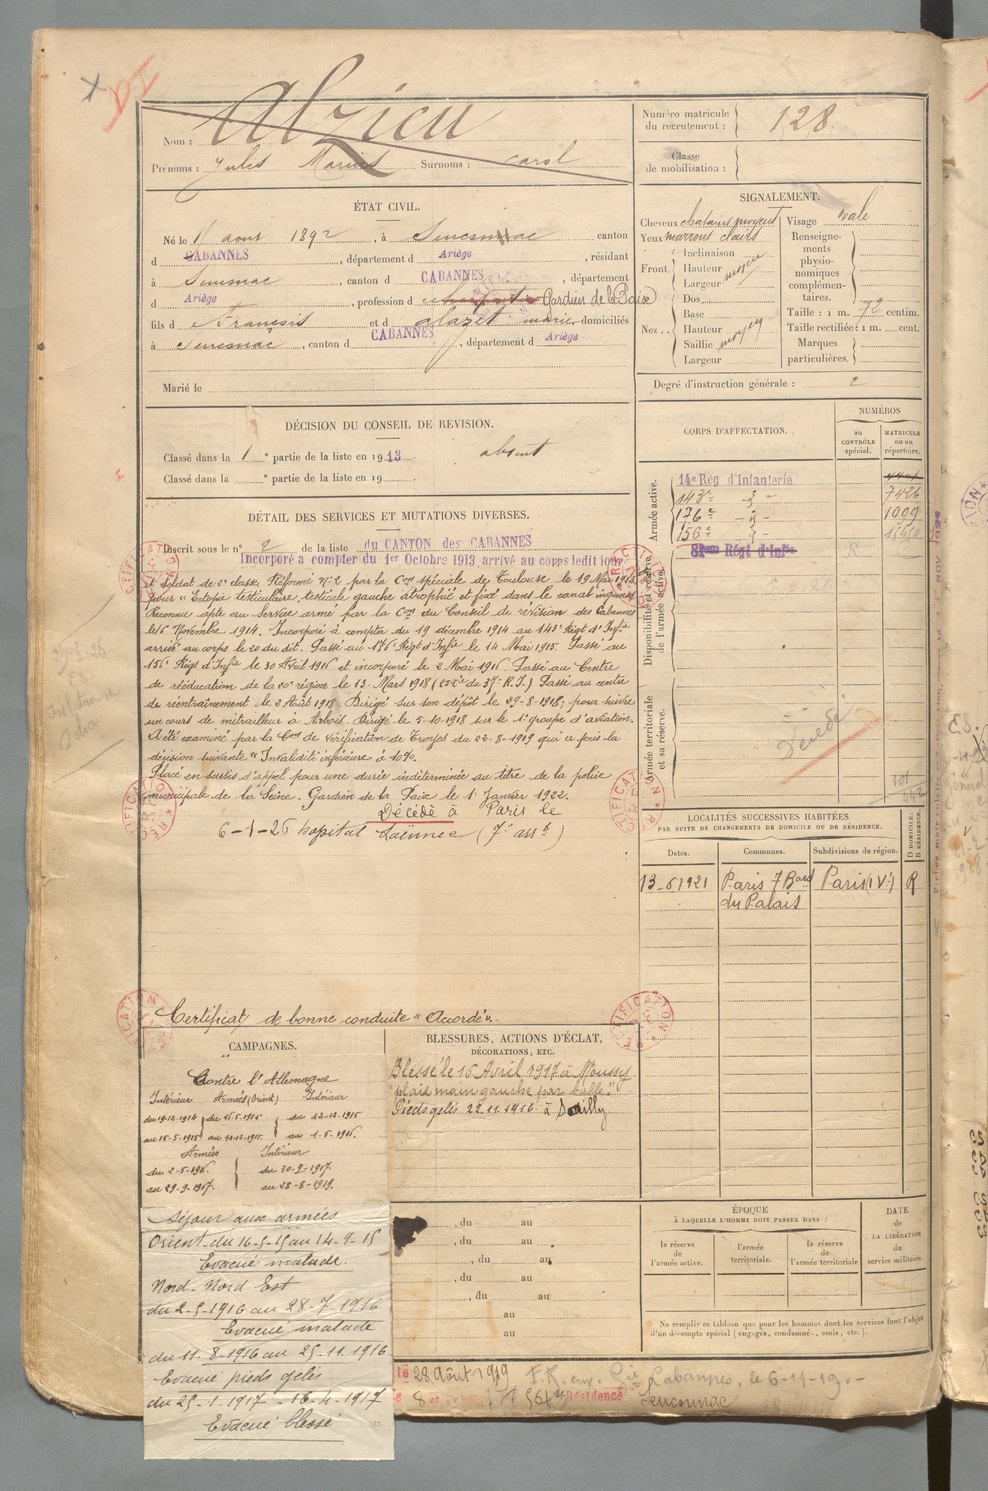 Nom : Alzieu
Prénoms : Jules Marius Surnoms : carol
Numéro matricule du recrutement : 128
Classe de mobilisation :
ÉTAT CIVIL.
Né le 1 aout 1892, à Senesmac canton
d CABANNES, département d Ariège, résidant
à Senesmac, canton d CABANNES, département
d Ariège, profession d Gardien de la Paix
fils d François et d Clazet marie, domiciliés
à Senesmac, canton d CABANNES, département d Ariège
Marié le
SIGNALEMENT.
Cheveux chatains moyens Visage ovale
Yeux marrons clairs
Front. Inclinaison
Hauteur moyen
Largeur
Nez.. Dos
Base
Hauteur moyen
Saillie
Largeur
Renseignements physionomiques complémentaires.
Taille : 1 m. 72 centim.
Taille rectifiée : 1 m. cent.
Marques particulières.
Degré d'instruction générale : 2
DÉCISION DU CONSEIL DE REVISION.
Classé dans la 1 e partie de la liste en 1913. absent
Classé dans la e partie de la liste en 19
CORPS D'AFFECTATION.
NUMÉROS
au CONTRÔLE spécial.
MATRICULE ou au répertoire.
Armée active.
14e Rég d'Infanterie
143e - d° - 7426
176e - d° - 1009
156e - d°
81eme Régt d'Infie
Disponibilité et réserve de l'armée active.
Armée territoriale et sa réserve.
Décédé
DÉTAIL DES SERVICES ET MUTATIONS DIVERSES.
Inscrit sous le n° 2 de la liste du CANTON des CABANNES
Incorporé a compter du 1er Octobre 1913, arrivé au corps ledit jour
et Soldat de 2e classe. Réformé N°2 par la Con spéciale de Toulouse le 19 Mai 1914
pour "Ectopie testiculaire, testicule gauche atrophié et fixé dans le canal inguinal
Reconnu apte au Service armé par la Con du Conseil de révision des Cabannes
le 16 Novembre 1914. Incorporé à compter du 19 décembre 1914 au 143e Régt d'Infie
arrivé au corps le 20 du dit. Passé au 176e Régt d'Infie le 14 Mai 1915. Passé au
156e Régt d'Infie le 30 Avril 1916 et incorporé le 2 Mai 1916. Passé au Centre
de rééducation de la 20e région le 13 Mars 1918 du 37e R.I.) Passé au centre
de réentraînement le 2 Août 1918. Dirigé sur son dépôt le 29-8-1918; pour suivre
un cours de mitrailleur à Arbois. Dirigé le 5-10-1918 sur le 1e groupe d'aviation.
A été examiné par la Con de vérification de Troyes du 22-8-1919 qui a pris la
décision suivante "Invalidité inférieure à 10%.
Placé en sursis d'appel pour une durée indéterminée au titre de la police
municipale de la Seine. Gardien de la Paix le 1 Janvier 1922.
Décédé à Paris le
6-1-26 hopital Laënnec (7e arrt)
LOCALITÉS SUCCESSIVES HABITÉES
PAR SUITE DE CHANGEMENTS DE DOMICILE OU DE RÉSIDENCE.
Dates. Communes. Subdivisions de région. D DOMICILE. R RÉSIDENCE.
13-6 1921 Paris 7 Bard du Palais Paris (IVe) R
Certificat de bonne conduite "Accordé".
CAMPAGNES.
Contre l'Allemagne
Intérieur Armées (Orient) Intérieur
du 19-12-1914 du 16-5-1915 du 12-12-1915
au 15-5-1915 au 11-12-1915 au 1-5-1916.
Armées Intérieur
du 2-5-1916. du 30-9-1917.
au 29-9-1917. au 28-8-1919.
BLESSURES, ACTIONS D'ÉCLAT,
DÉCORATIONS, ETC.
Blessé le 16 Avril 1917 à Moussy
"plaie main gauche par balle"
Pieds gelés 22.11.1916 à Sailly
Séjour aux armées
Orient du 16-5-15 au 14-9-15
Evacué malade.
Nord-Nord Est
du 2-5-1916 au 28-7-1916
Evacué malade
du 11-8-1916 au 25-11-1916
Evacué pieds gelés
du 25-1-1917 - 16-4-1917
Evacué blessé
, du au
, du au
, du au
, du au
, du au
au
au
ÉPOQUE
À LAQUELLE L'HOMME DOIT PASSER DANS :
la réserve de l'armée active.
l'armée territoriale.
la réserve de l'armée territoriale
DATE de LA LIBÉRATION du service militaire.
Ne remplir ce tableau que pour les hommes dont les services font l'objet
d'un décompte spécial (engagés, condamnés, omis, etc.).
28 Août 1919
Résidence
Cabannes, le 6-11-19